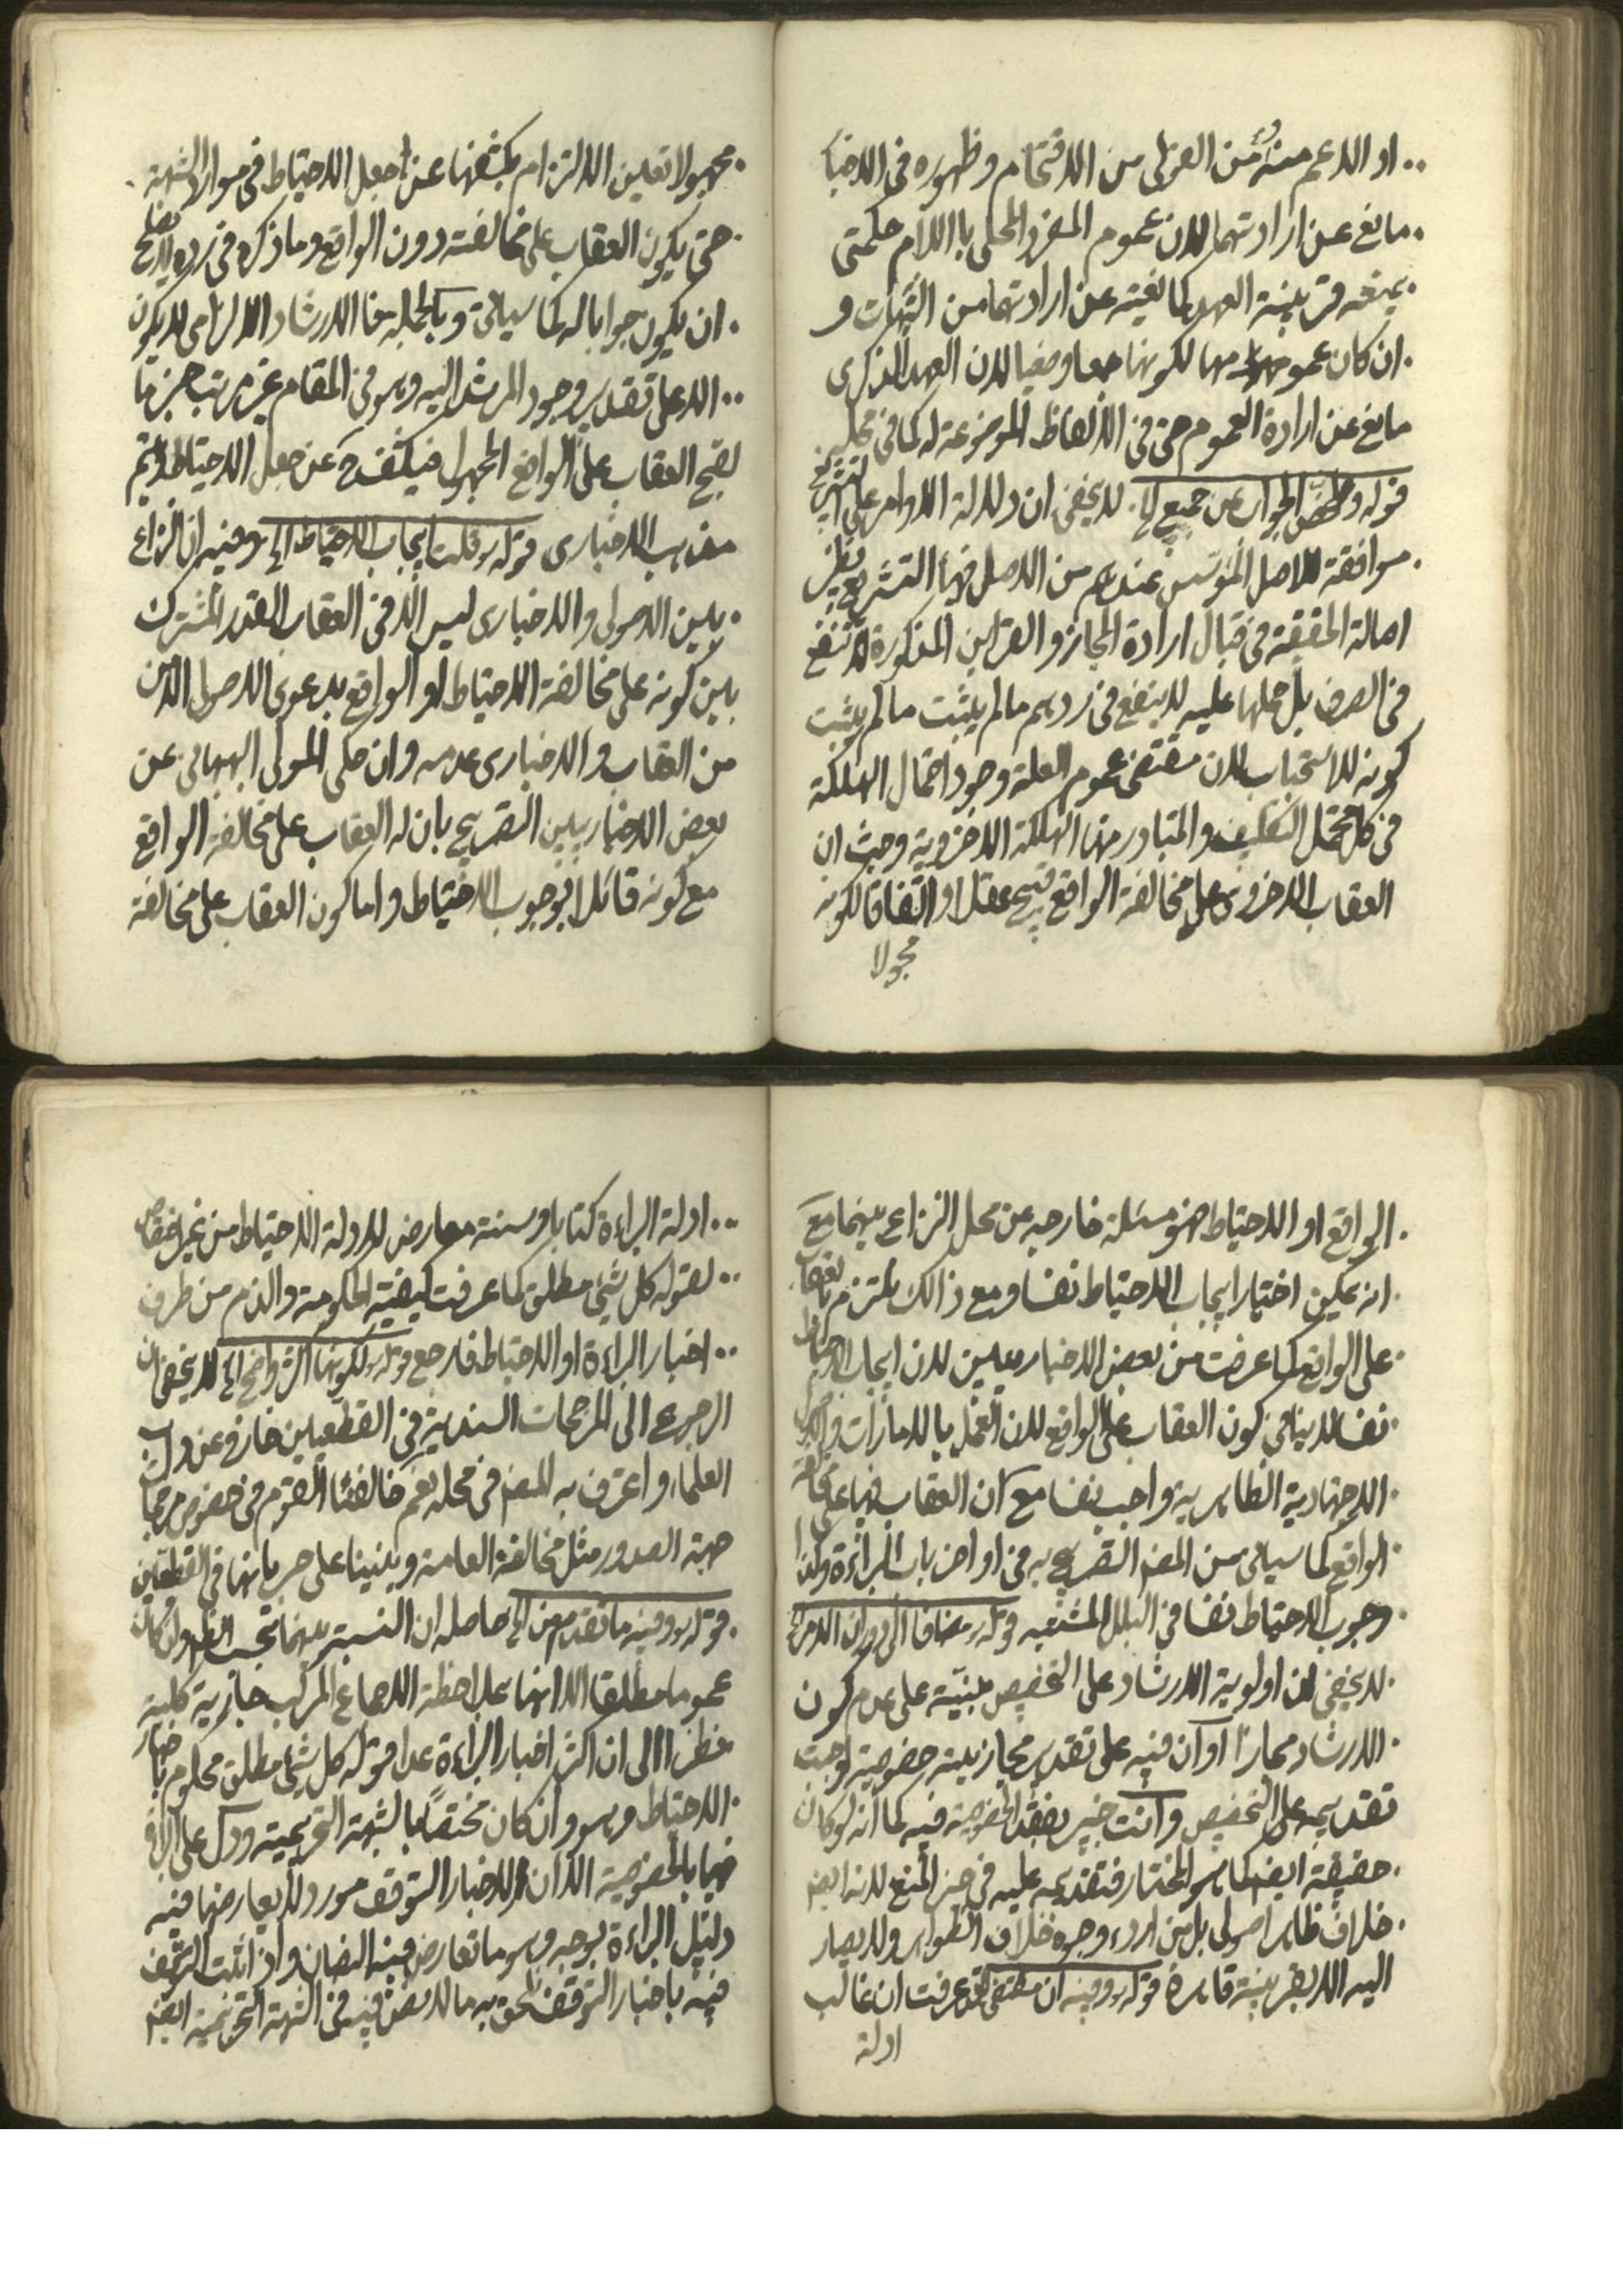 او الاعم منه من العزلى من الاقتحام وظهوره فى الاخبا
مانع عن ارادتهما لان عموم المفرد المحلى باللام حكمتى
يمنعه قرينة العهد كما نعيته عن ارادتهما من الشبهات و
ان كان عمومها لكونها جمعا وضعيا لان العهد الذكرى
مانع عن ارادة العموم حتى فى الالفاظ الموضوعة له كما فى محله
قوله وملخص الجواب عن جميع الخ لا يخفى ان دلالة الاوامر على
موافقة للاصل المؤسس عندهم من الاصل فيها التشريع نظير
اصالة الحقيقة فى قبال ارادة المجاز والقراين المذكورة لا تنفع
فى الصرف بل حملها عليه لا ينفع فى ردهم مالم يثبت مالم يثبت
كونه للاستحباب لان مقتضى عموم العلة وجود احتمال الهلكة
فى كل محتمل التكليف والمتبادر منها الهلكة الاخروية وحيث ان
العقاب الاخروى على مخالفة الواقع قبيح عقلا او اتفاقا لكونه
مجهولا
مجهولا تعين الالتزام بكشفها عن جعل الاحتياط فى موارد الشبهة
حتى يكون العقاب على مخالفته دون الواقع وما ذكره فى رده لا يصلح
ان يكون جوابا له كما سياتى وبالجملة هنا الارشاد الالزامى لا يكون
الا على تقدير وجود المرشد اليه وهو فى المقام غير مرتب جزما
لقبح العقاب على الواقع المجهول فيكشف ح عن جعل الاحتياط فيتم
مذهب الاخبارى قوله قلت ايجاب الاحتياط الخ وفيه ان النزاع
بين الاصولى والاخبارى ليس الا فى العقاب القدر المشترك
بين كونه على مخالفة الاحتياط او الواقع يدعوى الاصولى الامن
من العقاب والاخبارى عدمه وان حكى المولى البهبهانى عن
بعض الاخباريين التصريح بان له العقاب على مخالفة الواقع
مع كونه قائلا بوجوب الاحتياط واما كون العقاب على مخالفة
الواقع او الاحتياط فهو مسئلة خارجه عن محل النزاع بينهما مع
انه يمكن اختيار ايجاب الاحتياط نفسا ومع ذالك يلتزم بالعقاب
على الواقع كما عرفت من بعض الاخباريين لان ايجاب الاحتياط
نفسا لا ينافى كون العقاب على الواقع لان العمل بالامارات و
الاجتهادية الظاهرية واجب نفسا مع ان العقاب فيها على مخالفة
الواقع كما سياتى من المصنف التصريح به فى اواخر باب البرائة وكذا
وجوب الاحتياط نفسا فى البلل المشتبه قوله مضافا الى دوران الامر الخ
لا يخفى ان اولوية الارشاد على التخصيص مبنية على عدم كون
الارشاد مجازا او ان فيه على تقدير مجازيته خصوصية اوجبت
تقديمه على التخصيص وانت خبير بفقد الخصوصية فيه كما انه لو كان
حقيقة ايضا كما هو المختار فتقديمه عليه فى حيز المنع لانه ايضا
خلاف ظاهر اصولى بل من اردء وجوه خلاف الظواهر ولا يصار
اليه الا بقرينة قاهرة قوله وفيه ان مقتضى الخ قد عرفت ان غالب
ادلة
ادلة البراءة كتابا وسنة معارض لادلة الاحتياط من غير اختصاص
لقوله كل شيئ مطلق كما عرفت كيفية الحكومة والذم من طرف
اخبار البراءة او الاحتياط فارجع قوله لكونها اكثر واضح الخ لا يخفى ان
الرجوع الى المرجحات السندية فى القطعيين خارج عن
العلماء واعترف به المصنف فى محله نعم خالفنا القوم فى خصوص مرجحات
جهة الصدور مثل مخالفة العامة وبنينا على جريانها فى القطعيين
قوله وفيه ما تقدم من الخ حاصله ان النسبة بينهما بحسب الظهور وان كان
عموما مطلقا الا انها بملاحظة الاجماع المركب جازية كلية
نظرا الى ان اكثر اخبار البراءة عدا قوله كل شيئ مطلق محكوم باخبار
الاحتياط وهو وان كان مختصا بالشبهة التحريمية ودل على البراءة
فيها بالخصوصية الا ان لاخبار التوقف مورد لا يعارضها فيه
دليل البراءة بوجه وهو ما تعارض فيه النصان واذا اثبت التوقف
فيه باخبار التوقف لحق به ما لا نص فيه فى الشبهة التحريمية ايضا